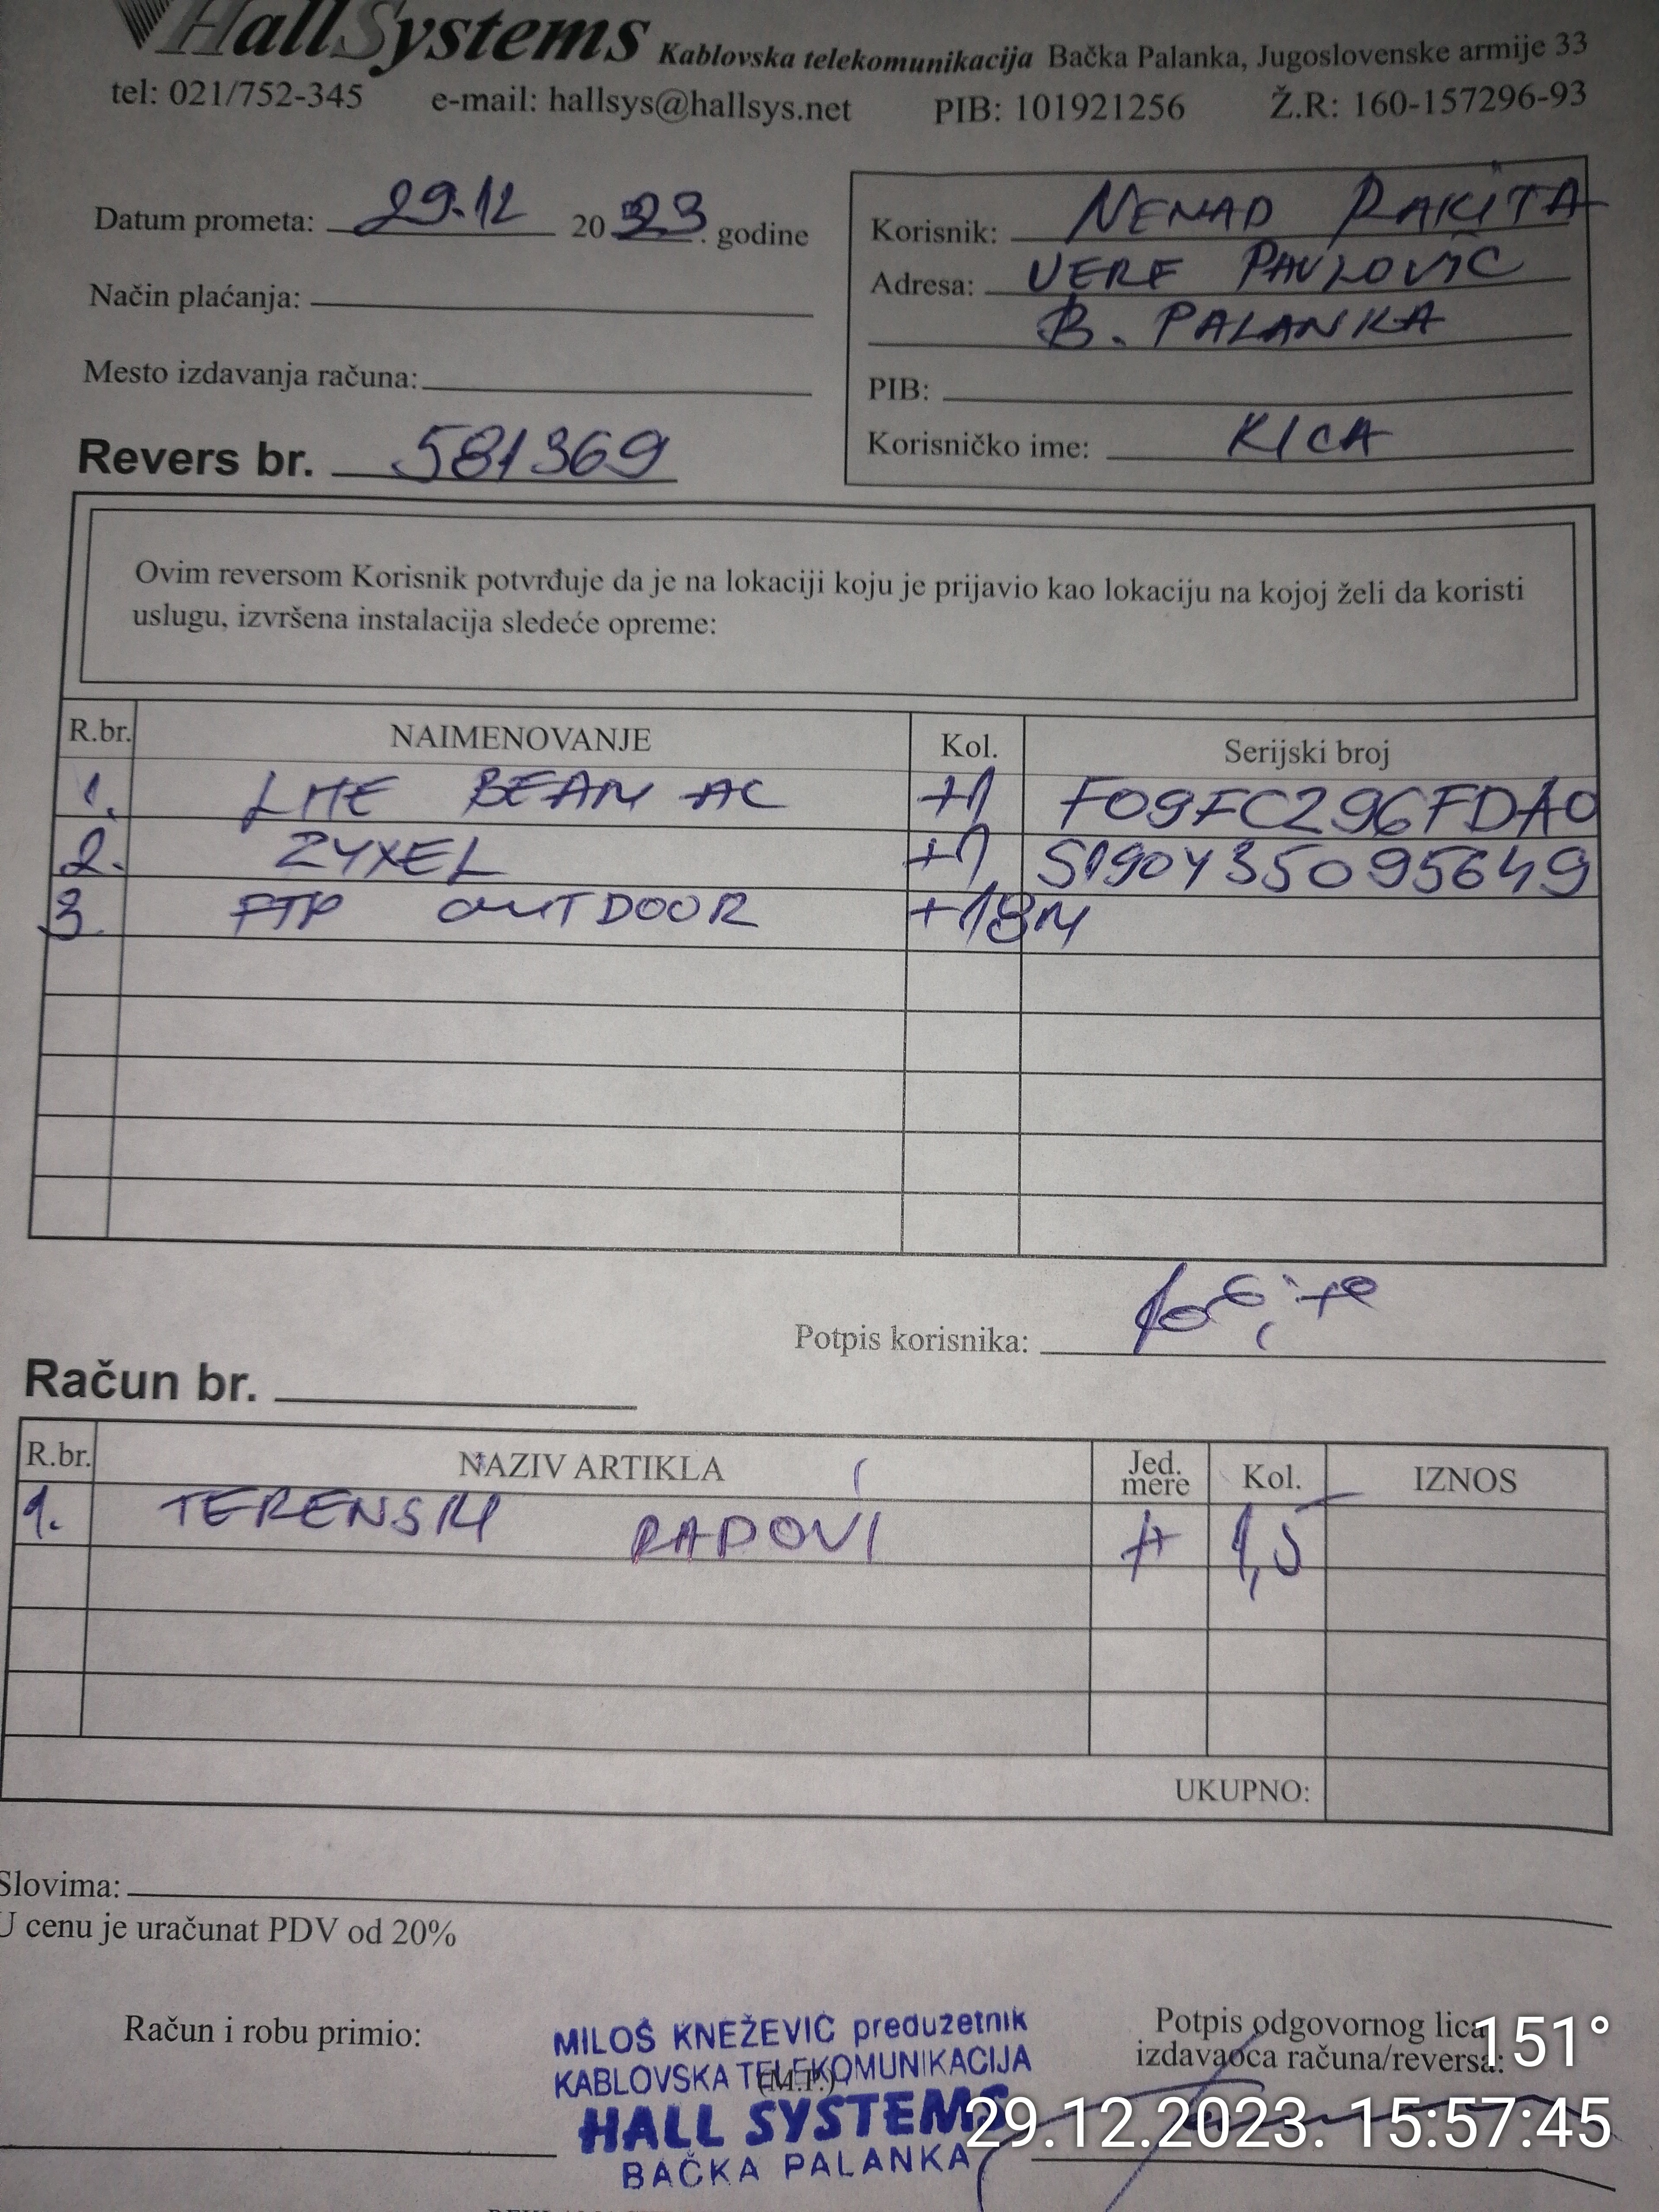 HallSystems Kablovska telekomunikacija Bačka Palanka, Jugoslovenske armije 33
tel: 021/752-345 e-mail: hallsys@hallsys.net PIB: 101921256 Ž.R: 160-157296-93
Datum prometa: 29.12 2023. godine
Način plaćanja:
Mesto izdavanja računa:
Revers br. 581369
Korisnik: NENAD RAKITA
Adresa: VERE PAVLOVIĆ
B. PALANKA
PIB:
Korisničko ime: KICA
Ovim reversom Korisnik potvrđuje da je na lokaciji koju je prijavio kao lokaciju na kojoj želi da koristi
uslugu, izvršena instalacija sledeće opreme:
R.br. NAIMENOVANJE Kol. Serijski broj
1. LITE BEAM AC +1 F09FC296FDA0
2. ZYXEL +1 S190Y35095649
3. FTP OUTDOOR +18M
Potpis korisnika:
Račun br.
R.br. NAZIV ARTIKLA Jed. mere Kol. IZNOS
1. TERENSKI RADOVI H 1,5
UKUPNO:
Slovima:
U cenu je uračunat PDV od 20%
Račun i robu primio:
MILOŠ KNEŽEVIĆ preduzetnik
KABLOVSKA TELEKOMUNIKACIJA
(M.P.)
HALL SYSTEMS
BAČKA PALANKA
Potpis odgovornog lica
izdavaoca računa/reversa:
151°
29.12.2023. 15:57:45